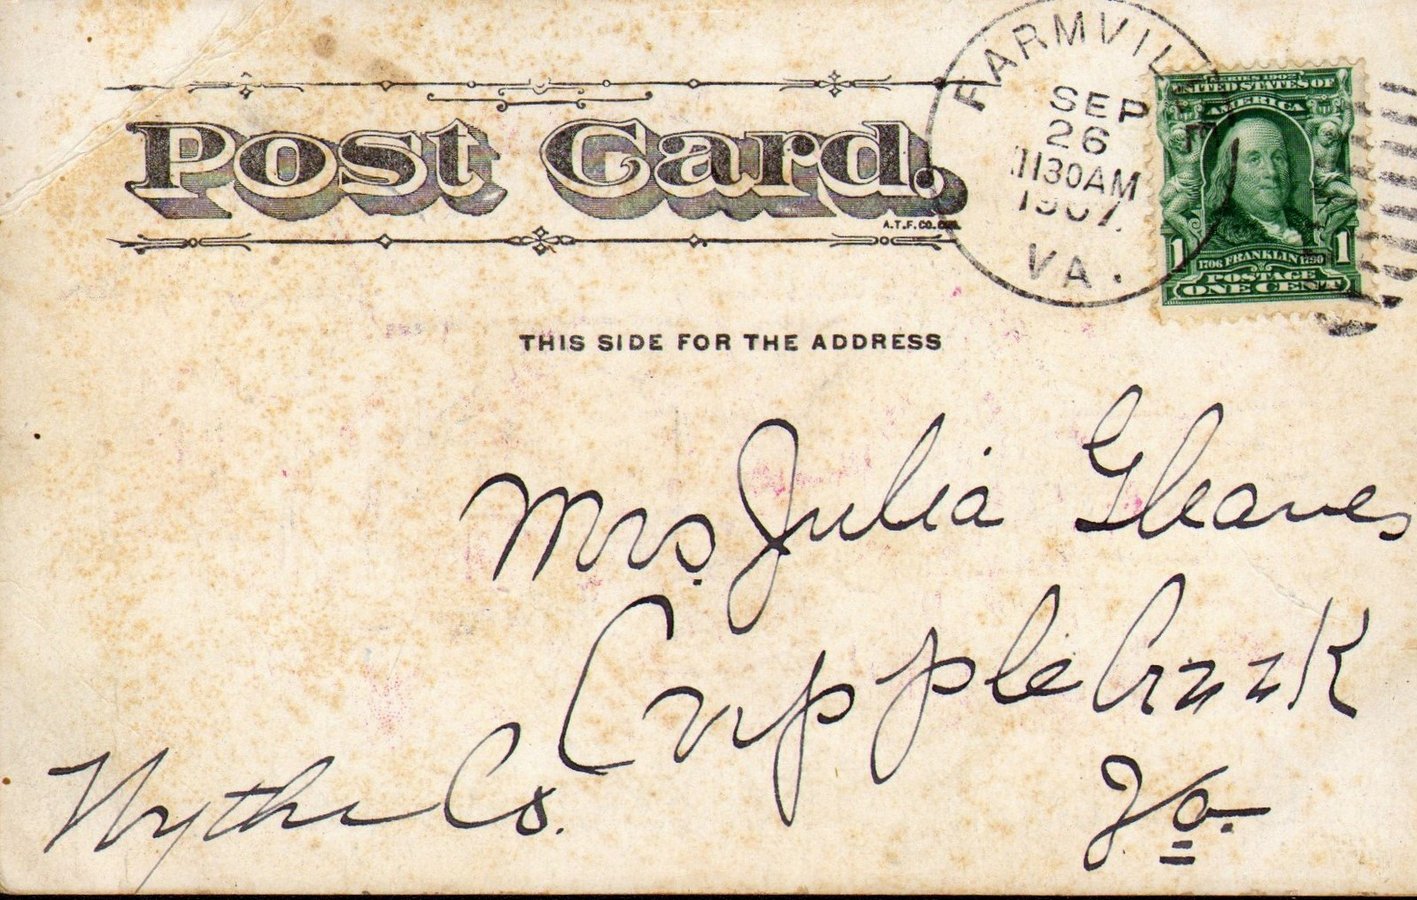 Post Card.
A.T.F.CO.
FARMVILLE
SEP
26
1130AM
1907
VA.
SERIES 1902
UNITED STATES OF
AMERICA
1 1
1706 FRANKLIN 1790
POSTAGE
ONE CENT
THIS SIDE FOR THE ADDRESS
Mrs. Julia Gleaves
Cripple Creek
Wythe Co.
Va.